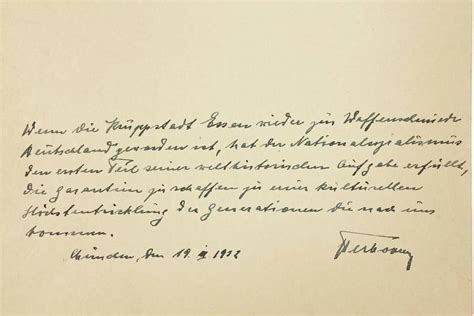 Wenn die Kruppstadt Essen wieder zur Waffenschmiede
Deutschlands geworden ist, hat der Nationalsozialismus
den ersten Teil seiner welthistorischen Aufgabe erfüllt,
die Garantien zu schaffen zu einer kulturellen
Höchstentwicklung der Generationen die nach uns
kommen.
München, den 19. 1932 Terboven